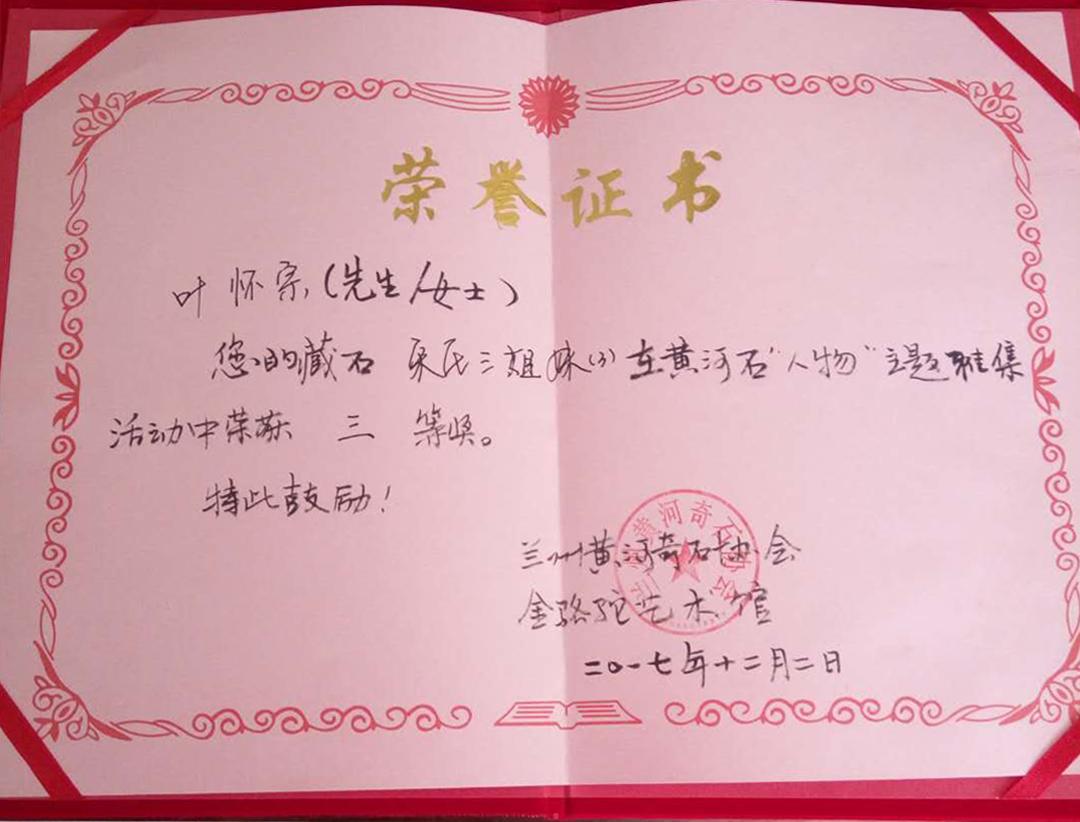 荣誉证书
叶怀宗(先生/女士)
您的藏石 宋氏三姐妹(3)在黄河石"人物"主题雅集
活动中荣获 三 等奖。
特此鼓励!
兰州黄河奇石协会
金骆驼艺术馆
二〇一七年十二月二日
兰州黄河奇石协会